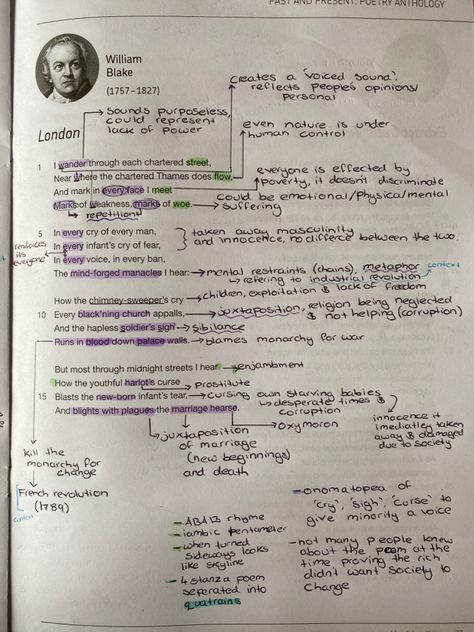 PAST AND PRESENT: POETRY ANTHOLOGY
William
Blake
(1757–1827)
creates a 'voiced sound',
reflects people's opinions/
personal
sounds purposeless,
could represent
lack of power
even nature is under
human control
London
1 I wander through each chartered street,
Near where the chartered Thames does flow,
And mark in every face I meet
Marks of weakness, marks of woe.
repetition
everyone is effected by
poverty, it doesn't discriminate
could be emotional/physical/mental
suffering
5 In every cry of every man,
In every infant's cry of fear,
In every voice, in every ban,
The mind-forged manacles I hear:
reinforces
its
everyone
taken away masculinity
and innocence, no differce between the two
mental restraints (chains), metaphor
context
referring to industrial revolution
How the chimney-sweeper's cry
children, exploitation & lack of freedom
10 Every black'ning church appalls,
juxtaposition, religion being neglected
& not helping (corruption)
And the hapless soldier's sigh
sibilance
Runs in blood down palace walls.
blames monarchy for war
But most through midnight streets I hear
enjambment
How the youthful harlot's curse
prostitute
15 Blasts the new-born infant's tear,
cursing own starving babies
desperate times &
corruption
And blights with plagues the marriage hearse.
oxymoron
innocence it
imediatley taken
away & damaged
due to society
juxtaposition
of marriage
(new beginnings)
and death
kill the
monarchy for
change
French revolution
(1789)
context
- ABAB rhyme
- iambic pentameter
- when turned
sideways looks
like skyline
- 4 stanza poem
seperated into
quatrains
- onomatopea of
'cry', 'sigh', 'curse' to
give minority a voice
- not many people knew
about the poem at the
time proving the rich
didn't want society to
change